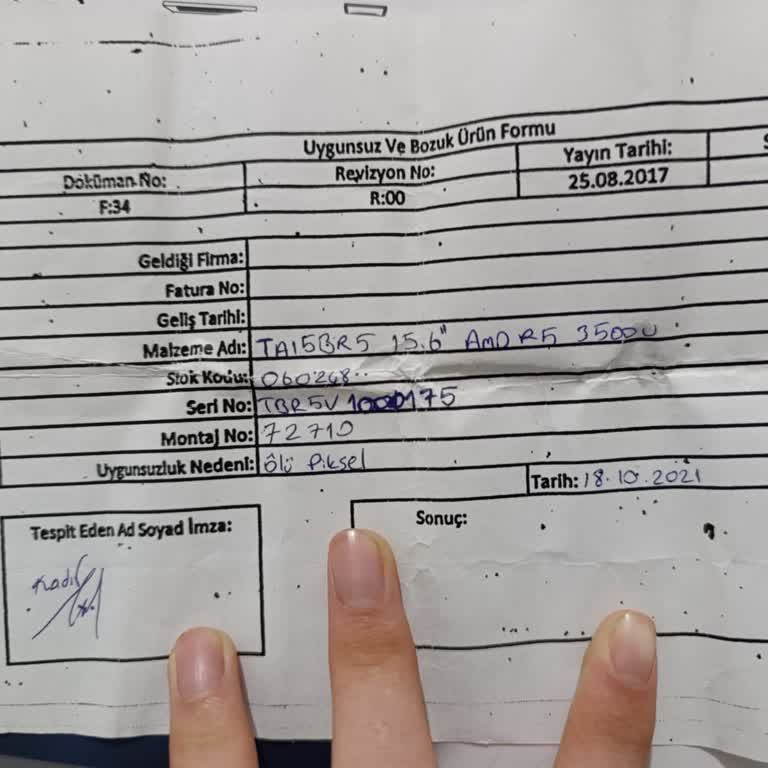 Uygunsuz Ve Bozuk Ürün Formu
Doküman No: Revizyon No: Yayın Tarihi:
F:34 R:00 25.08.2017
Geldiği Firma:
Fatura No:
Geliş Tarihi:
Malzeme Adı: TA15BR5 15.6" AMD R5 3500U
Stok Kodu: 060248
Seri No: TBR5V1000175
Montaj No: 72710
Uygunsuzluk Nedeni: ölü Piksel
Tarih: 18.10.2021
Tespit Eden Ad Soyad İmza: Sonuç:
Kadir